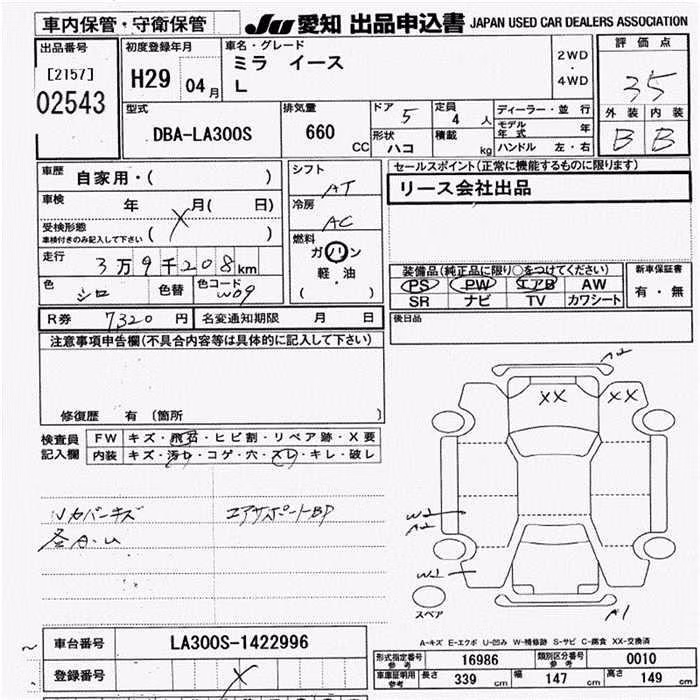 車内保管・守衛保管 JU 愛知 出品申込書 JAPAN USED CAR DEALERS ASSOCIATION
出品番号 初度登録年月 車名・グレード 評価点
[2157] H29 04月 ミラ イース 2WD・4WD 35
02543 L 外装 内装
B B
型式 排気量 ドア 5 定員 4人 ディーラー・並行
DBA-LA300S 660 CC 形状 ハコ 積載 kg モデル年式 年
ハンドル 左・右
車歴 自家用・( ) シフト AT セールスポイント(正常に機能するものに限ります)
車検 年 X 月( 日) 冷房 AC リース会社出品
受検形態 ( )
車検付きのみ記入して下さい
燃料 ガソリン
軽・油
( )
走行 3万9千208km
色 シロ 色替 色コード W09
装備品(純正品に限り○をつけてください) 新車保証書
PS PW エアB AW 有・無
SR ナビ TV カワシート
R券 7,320円 名変通知期限 月 日 後日品
注意事項申告欄(不具合内容等は具体的に記入して下さい)
修復歴 有 (箇所 )
検査員記入欄 FW キズ・飛石・ヒビ割・リペア跡・X要
内装 キズ・汚れ・コゲ・穴・スレ・キレ・破レ
カバーキズ エアサポートBP
各A.U
A2
XX XX
W2
A2
W2
スペア A1
A-キズ E-エクボ U-凹み W-補修跡 S-サビ C-腐食 XX-交換済
車台番号 LA300S-1422996
登録番号 X
形式指定番号 参考 16986 類別区分番号 参考 0010
車庫証明用 参考 長さ 339 cm 幅 147 cm 高さ 149 cm